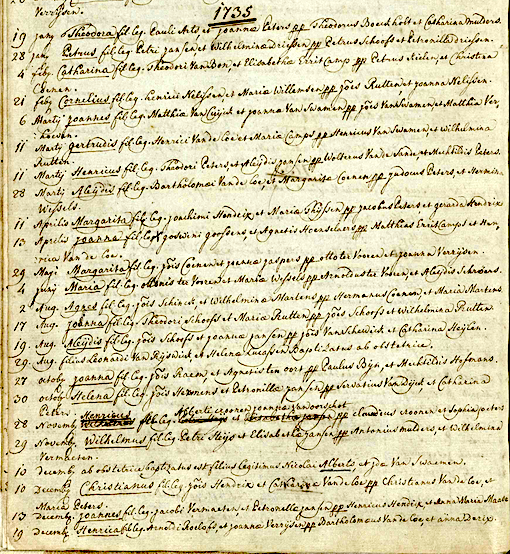 Verrijsen.
1735
19 janij Theodora fil. leg. Pauli Arts et joannæ Peters pp Theodorus Bocxholt et Catharina mulders.
28 janij Petrus fil. leg. Petri jansen et Wilhelminæ Driessen pp Petrus Schoofs et Petronilla driessen.
4 feby Catharina fil. leg. Theodori Van Bon, et Elisabetha Enrit Camp pp Petrus Kielen, et Christina
Coenen.
21 feby Cornelius fil. leg. henrici Nelissen et Mariæ Willemsen pp jöis Rutten et joanna Nelissen.
6 Martij joannes fil. leg. Matthiæ Van Cuijck et joannæ Van Swamen pp jöis Van Swamen, et Matthia Ver,
hoeven.
11 Marty Gertrudis fil. leg. Henrici Van de Loe, et Maria Camps pp Henricus Van Swamen, et Wilhelmina
Rutten.
11 Martij Henricus fil. leg. Theodori Peters et Aleydis jansen pp Wolterus Van de Sande, et Mechtildis Peters.
28 Martij Aleijdis fil. leg. Bartholomæi Van de Loe, et Margarita Coenen pp judocus Peters et Hermina
Wessels.
11 Aprilis Margarita fil. leg. joachimi Hendrix et Maria Thijssen pp jacobus Peters et gerarda Hendrix
13 Aprilis joanna fil. leg. goswini goossens, et Agnetis Hoenselaers pp Matthias Enrit Camps et Hen,
rica Van de Loe.
29 Maji Margarita fil. leg. jöis Coenen et joannæ jaspers pp otto ter Voren et joanna Verrijsen.
4 junij Maria fil. leg. ottonis ter Voren et Maria Wessels pp Arnoldus ter Voren, et Aleydis Schroers.
2 Aug. Agnes fil. leg. jöis Schinck, et Wilhelmina Martens pp Hermanus Coenen, et Maria Martens
17 Aug. joanna fil. leg. Theodori Schoofs et Maria Rutten pp jöis Schoofs et Wilhelmina Rutten.
19 Aug. Aleydis fil. leg. jöis Schoofs et joannæ jansen pp jöis Van Scheidick et Catharina Heijlen.
29 Aug. filius Leonardi Van Rijswick et Helena Lucassen Baptizatus ab obstetrice.
27 octob. joanna fil. leg. jöis Raem, et Agnetis ten oort pp Paulus Bijn, et Mechtildis Hofmans.
30 octob. Helena fil. leg. jöis Hermens et Petronillæ jansen pp Servatius Van Dijck et Catharina
Peters.
28 Novemb. Henricus fil. leg. Alberti croonen joannæ van oorschot pp elmerus croonen et Sophia peters
29 Novemb. Wilhelmus fil. leg. Petri Heijs et Elisabetha jansen pp Antonius mulders, et Wilhelmina
Vermaeten.
10 decemb. ab obstetrice baptizatus est filius legitimus Nicolai Alberts et Idæ Van Swaemen.
10 Decemb. Christianus fil. leg. jöis Hendrix et Catharinæ Van de Loe pp Christianus Van de Loe, et
Maria Peters.
13 decemb. joannes fil. leg. jacobi Vermaeten, et Petronellæ jansen pp Henricus Hendrix, et Anna Maria
19 decemb. Henrica fil. leg. Arnoldi Roelofs, et joannæ Verrijsen pp Bartholomæus Van de Loe, et anna derix.